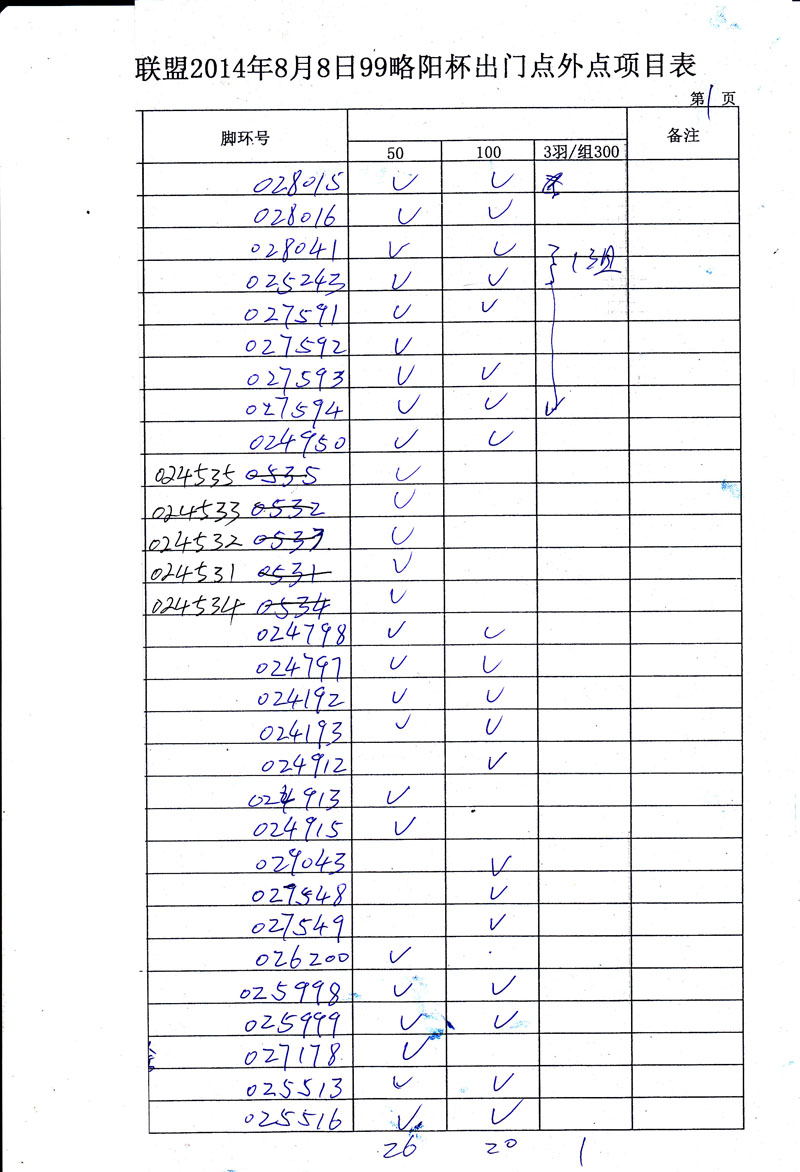 联盟2014年8月8日99略阳杯出门点外点项目表
第1页
脚环号 备注
50 100 3羽/组300
028015 ✓ ✓
028016 ✓ ✓
028041 ✓ ✓
025243 ✓ ✓ 1组
027591 ✓ ✓
027592 ✓
027593 ✓ ✓
027594 ✓ ✓ ✓
024950 ✓ ✓
024535 0535 ✓
024533 0532 ✓
024532 0533 ✓
024531 0531 ✓
024534 0534 ✓
024798 ✓ ✓
024797 ✓ ✓
024192 ✓ ✓
024193 ✓ ✓
024912 ✓
024913 ✓
024915 ✓
029043 ✓
027548 ✓
027549 ✓
026200 ✓
025998 ✓ ✓
025999 ✓ ✓
027178 ✓
025513 ✓ ✓
025516 ✓ ✓
26 20 1